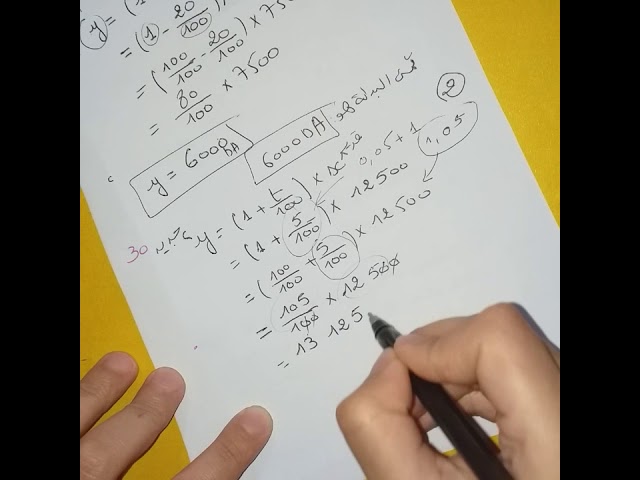 y = (1
= (1 - 20/100)
= (100/100 - 20/100) × 7500
= 80/100 × 7500
y = 6000 DA
6000 DA
2
y = (1 + t/100) × x
= (1 + 5/100) × 12500
0,05 + 1
1,05
= (100/100 + 5/100) × 12500
= 105/100 × 12500
= 13 125
30